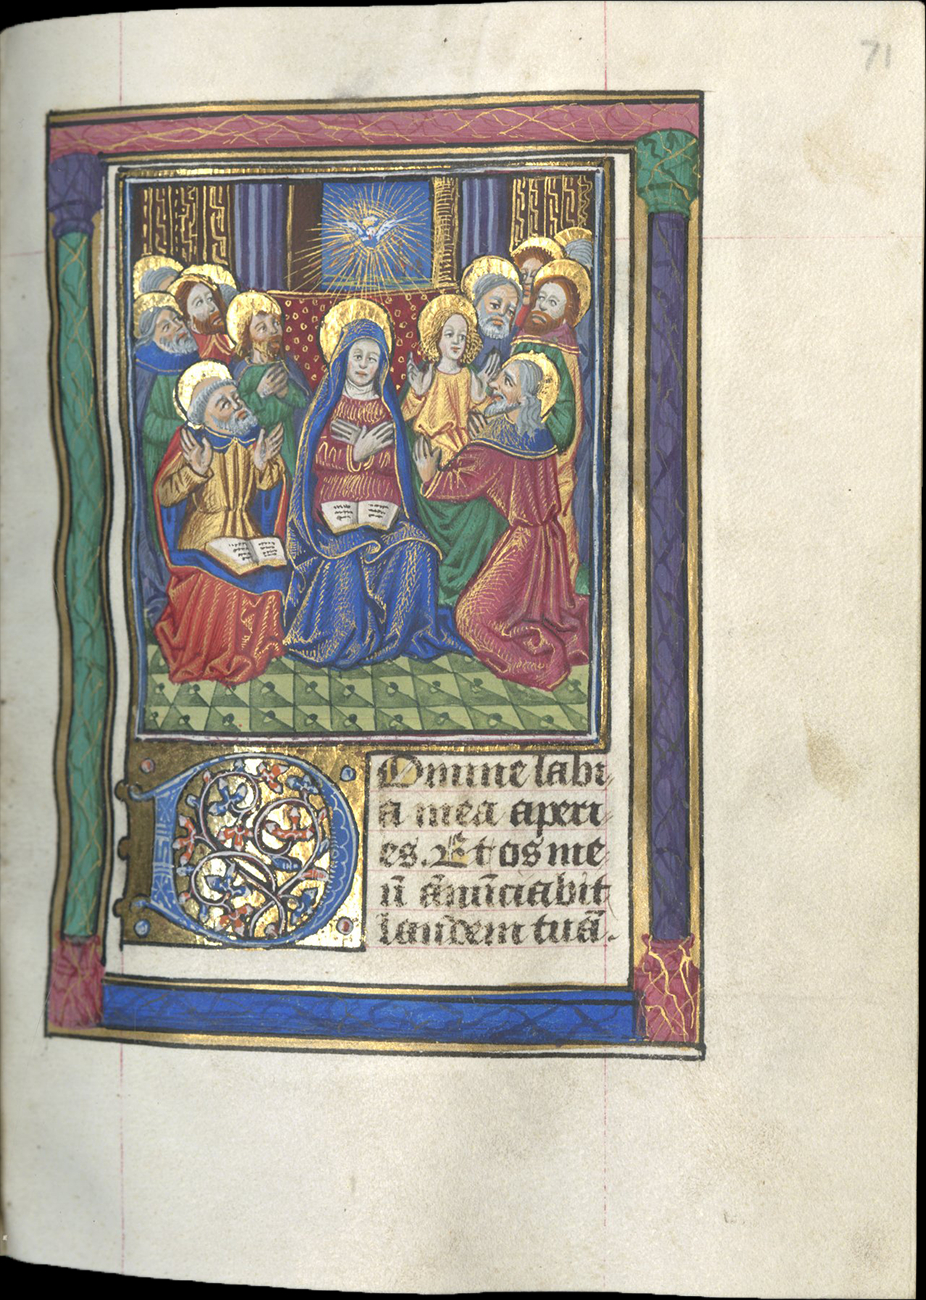 71
Domine labi
a mea aperi
es. Et os me
ū ānūciabit
laudem tuā.